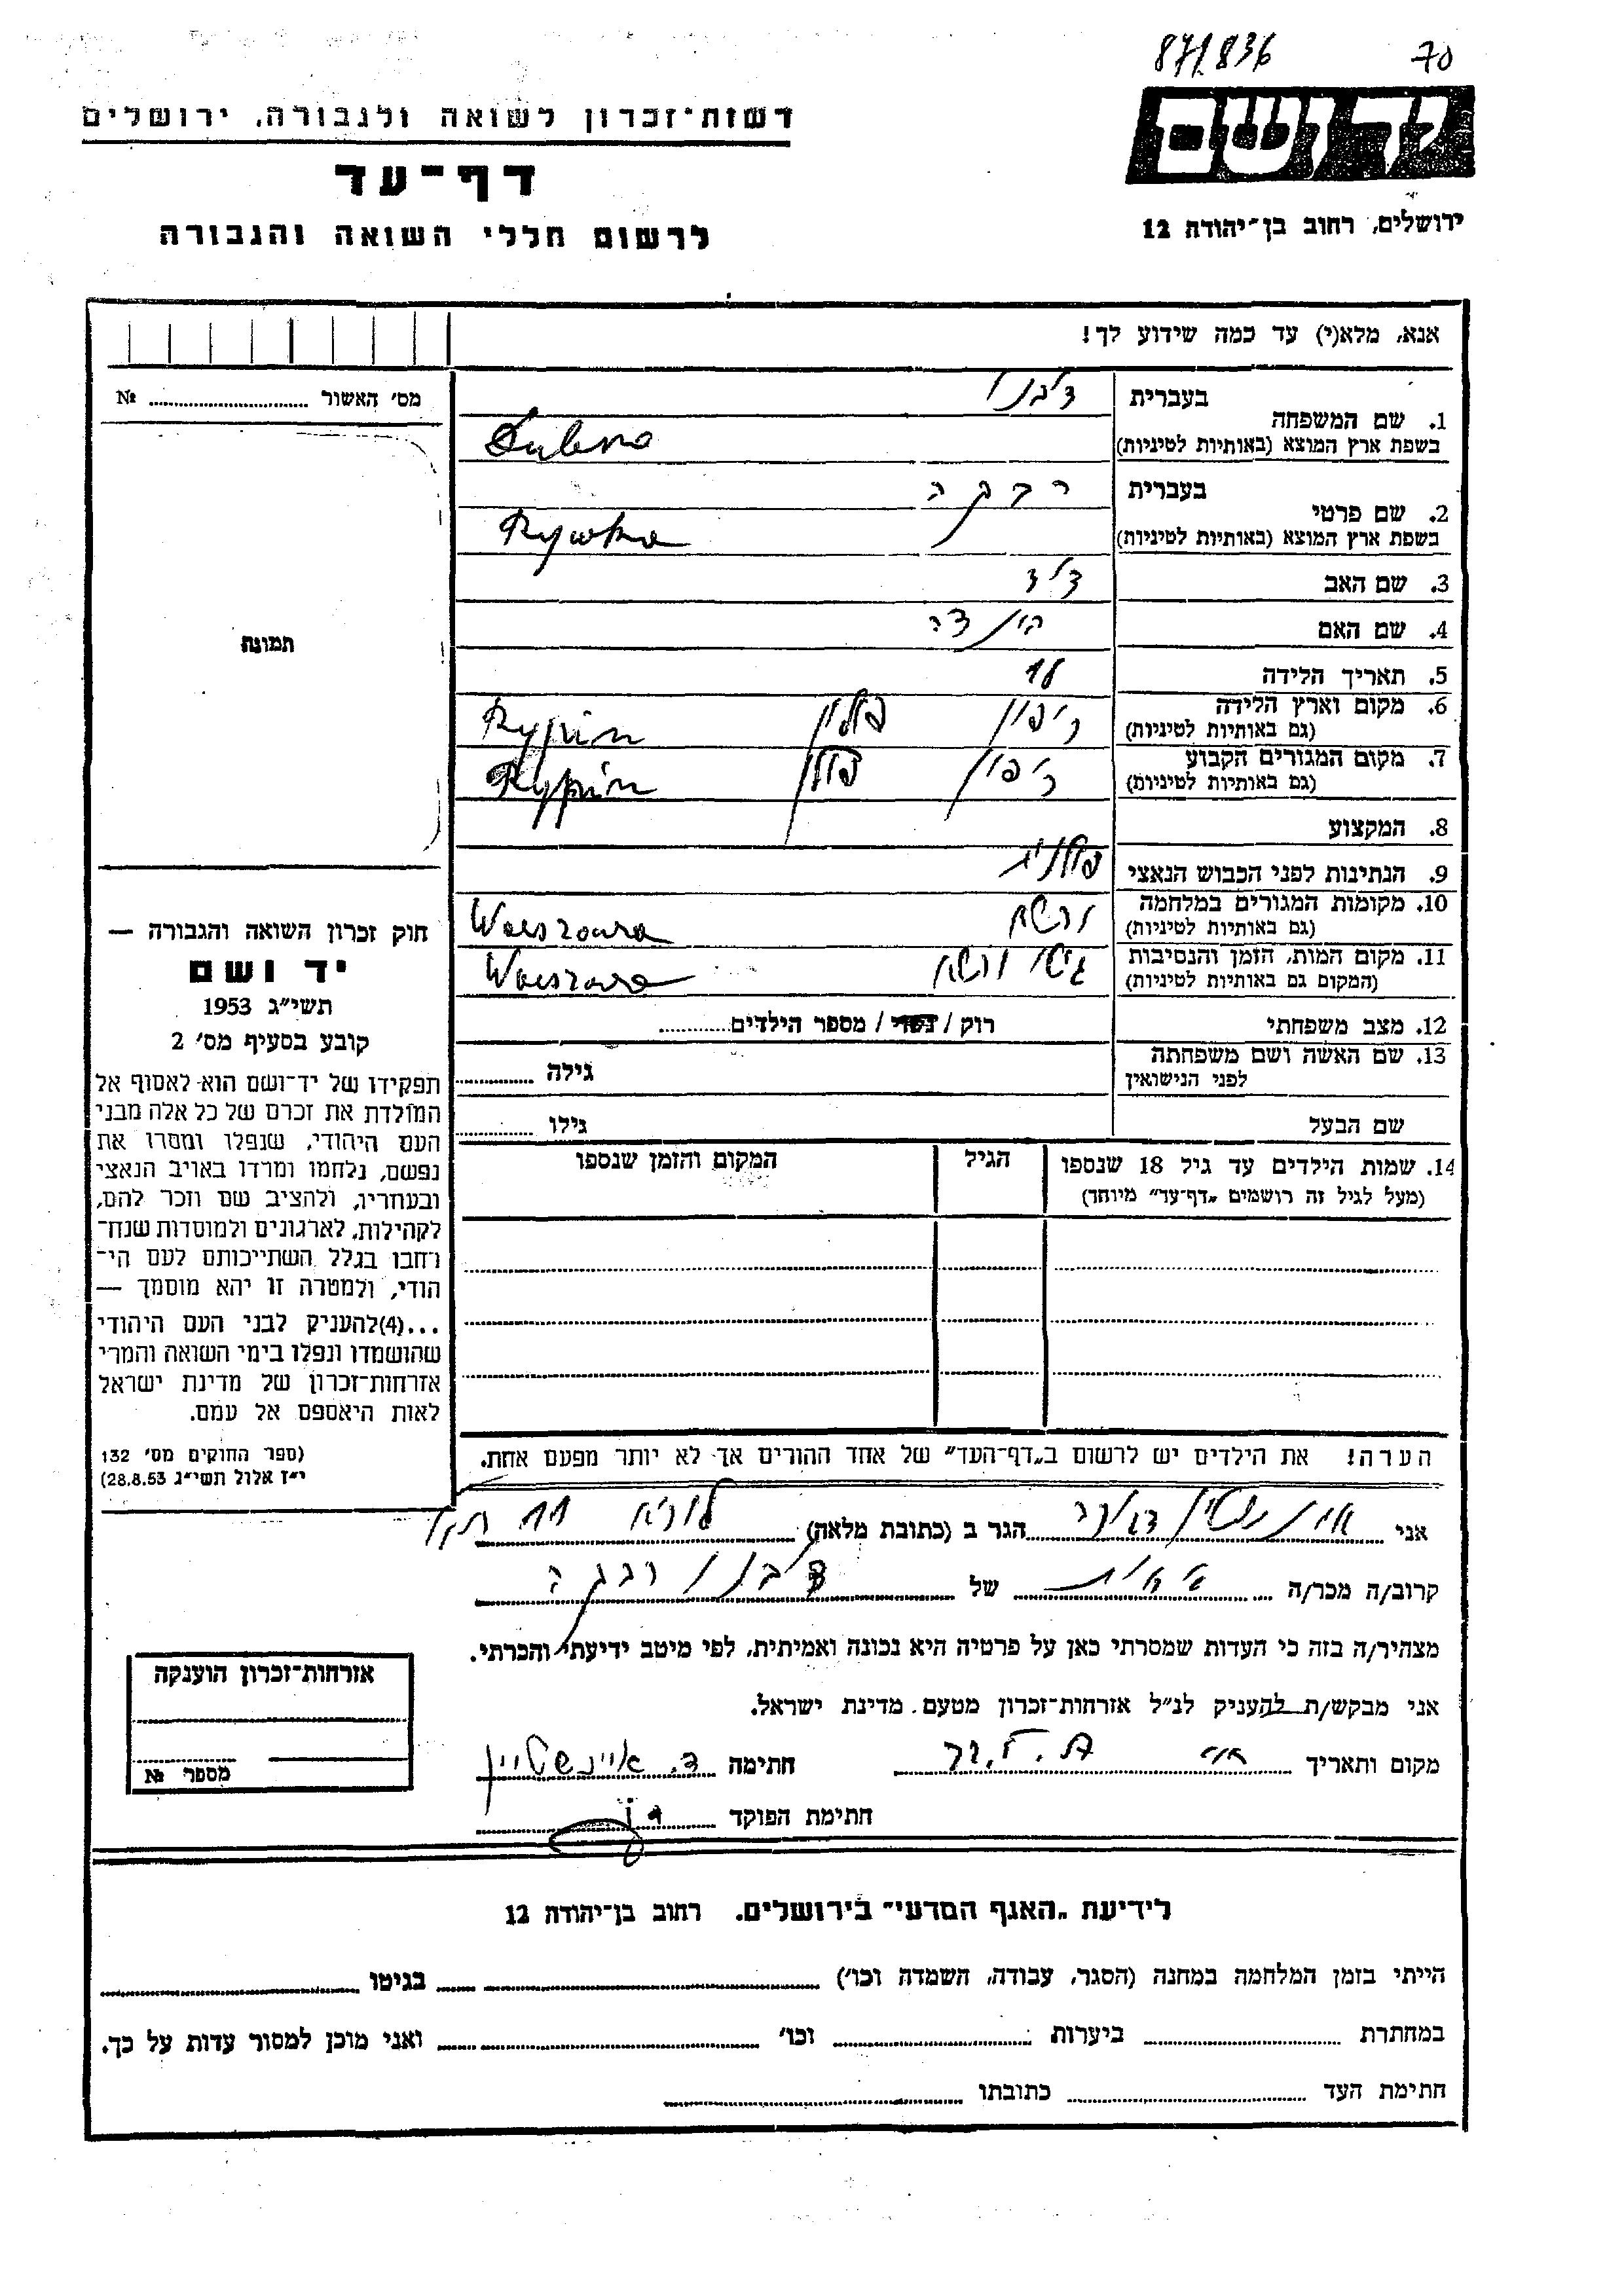 871836 70
יד ושם
ירושלים, רחוב בן־יהודה 12
רשות־זכרון לשואה ולגבורה, ירושלים
דף־עד
לרשום חללי השואה והגבורה
אנא, מלא(י) עד כמה שידוע לך!
מס׳ האשור № ....................
תמונה
1. שם המשפחה
בעברית
בשפת ארץ המוצא (באותיות לטיניות)
Dulena
2. שם פרטי
בעברית רבקה
בשפת ארץ המוצא (באותיות לטיניות) Rywka
3. שם האב דוד
4. שם האם
5. תאריך הלידה
6. מקום וארץ הלידה ריפין פולין Rypin
(גם באותיות לטיניות)
7. מקום המגורים הקבוע ריפין פולין Rypin
(גם באותיות לטיניות)
8. המקצוע
9. הנתינות לפני הכבוש הנאצי פולנית
10. מקומות המגורים במלחמה ורשה Warszawa
(גם באותיות לטיניות)
11. מקום המות, הזמן והנסיבות גיטו ורשה Warszawa
(המקום גם באותיות לטיניות)
12. מצב משפחתי רוק / נשוי / מספר הילדים..........
13. שם האשה ושם משפחתה
לפני הנישואין גילה ..........
שם הבעל גילו ..........
14. שמות הילדים עד גיל 18 שנספו הגיל המקום והזמן שנספו
(מעל לגיל זה רושמים „דף־עד״ מיוחד)
הערה! את הילדים יש לרשום ב„דף־העד״ של אחד ההורים אך לא יותר מפעם אחת.
חוק זכרון השואה והגבורה —
יד ושם
תשי״ג 1953
קובע בסעיף מס׳ 2
תפקידו של יד־ושם הוא לאסוף אל
המולדת את זכרם של כל אלה מבני
העם היהודי, שנפלו ומסרו את
נפשם, נלחמו ומרדו באויב הנאצי
ובעוזריו, ולהציב שם וזכר להם,
לקהילות, לארגונים ולמוסדות שנח־
רחבו בגלל השתייכותם לעם הי־
הודי, ולמטרה זו יהא מוסמך —
...(4)להעניק לבני העם היהודי
שהושמדו ונפלו בימי השואה והמרי
אזרחות־זכרון של מדינת ישראל
לאות היאספם אל עמם.
(ספר החוקים מס׳ 132
י״ז אלול תשי״ג 28.8.53)
אני איינשטיין הגר ב (כתובת מלאה) 11
קרוב/ה מכר/ה של רבקה
מצהיר/ה בזה כי העדות שמסרתי כאן על פרטיה היא נכונה ואמיתית, לפי מיטב ידיעתי והכרתי.
אני מבקש/ת להעניק לנ״ל אזרחות־זכרון מטעם מדינת ישראל.
מקום ותאריך חתימה ד. איינשטיין
חתימת הפוקד
אזרחות־זכרון הוענקה
מספר №
לידיעת „האגף המדעי״ בירושלים, רחוב בן־יהודה 12
הייתי בזמן המלחמה במחנה (הסגר, עבודה, השמדה וכו׳) .......... בגיטו ..........
במחתרת .......... ביערות .......... וכו׳ .......... ואני מוכן למסור עדות על כך.
חתימת העד .......... כתובתו ..........